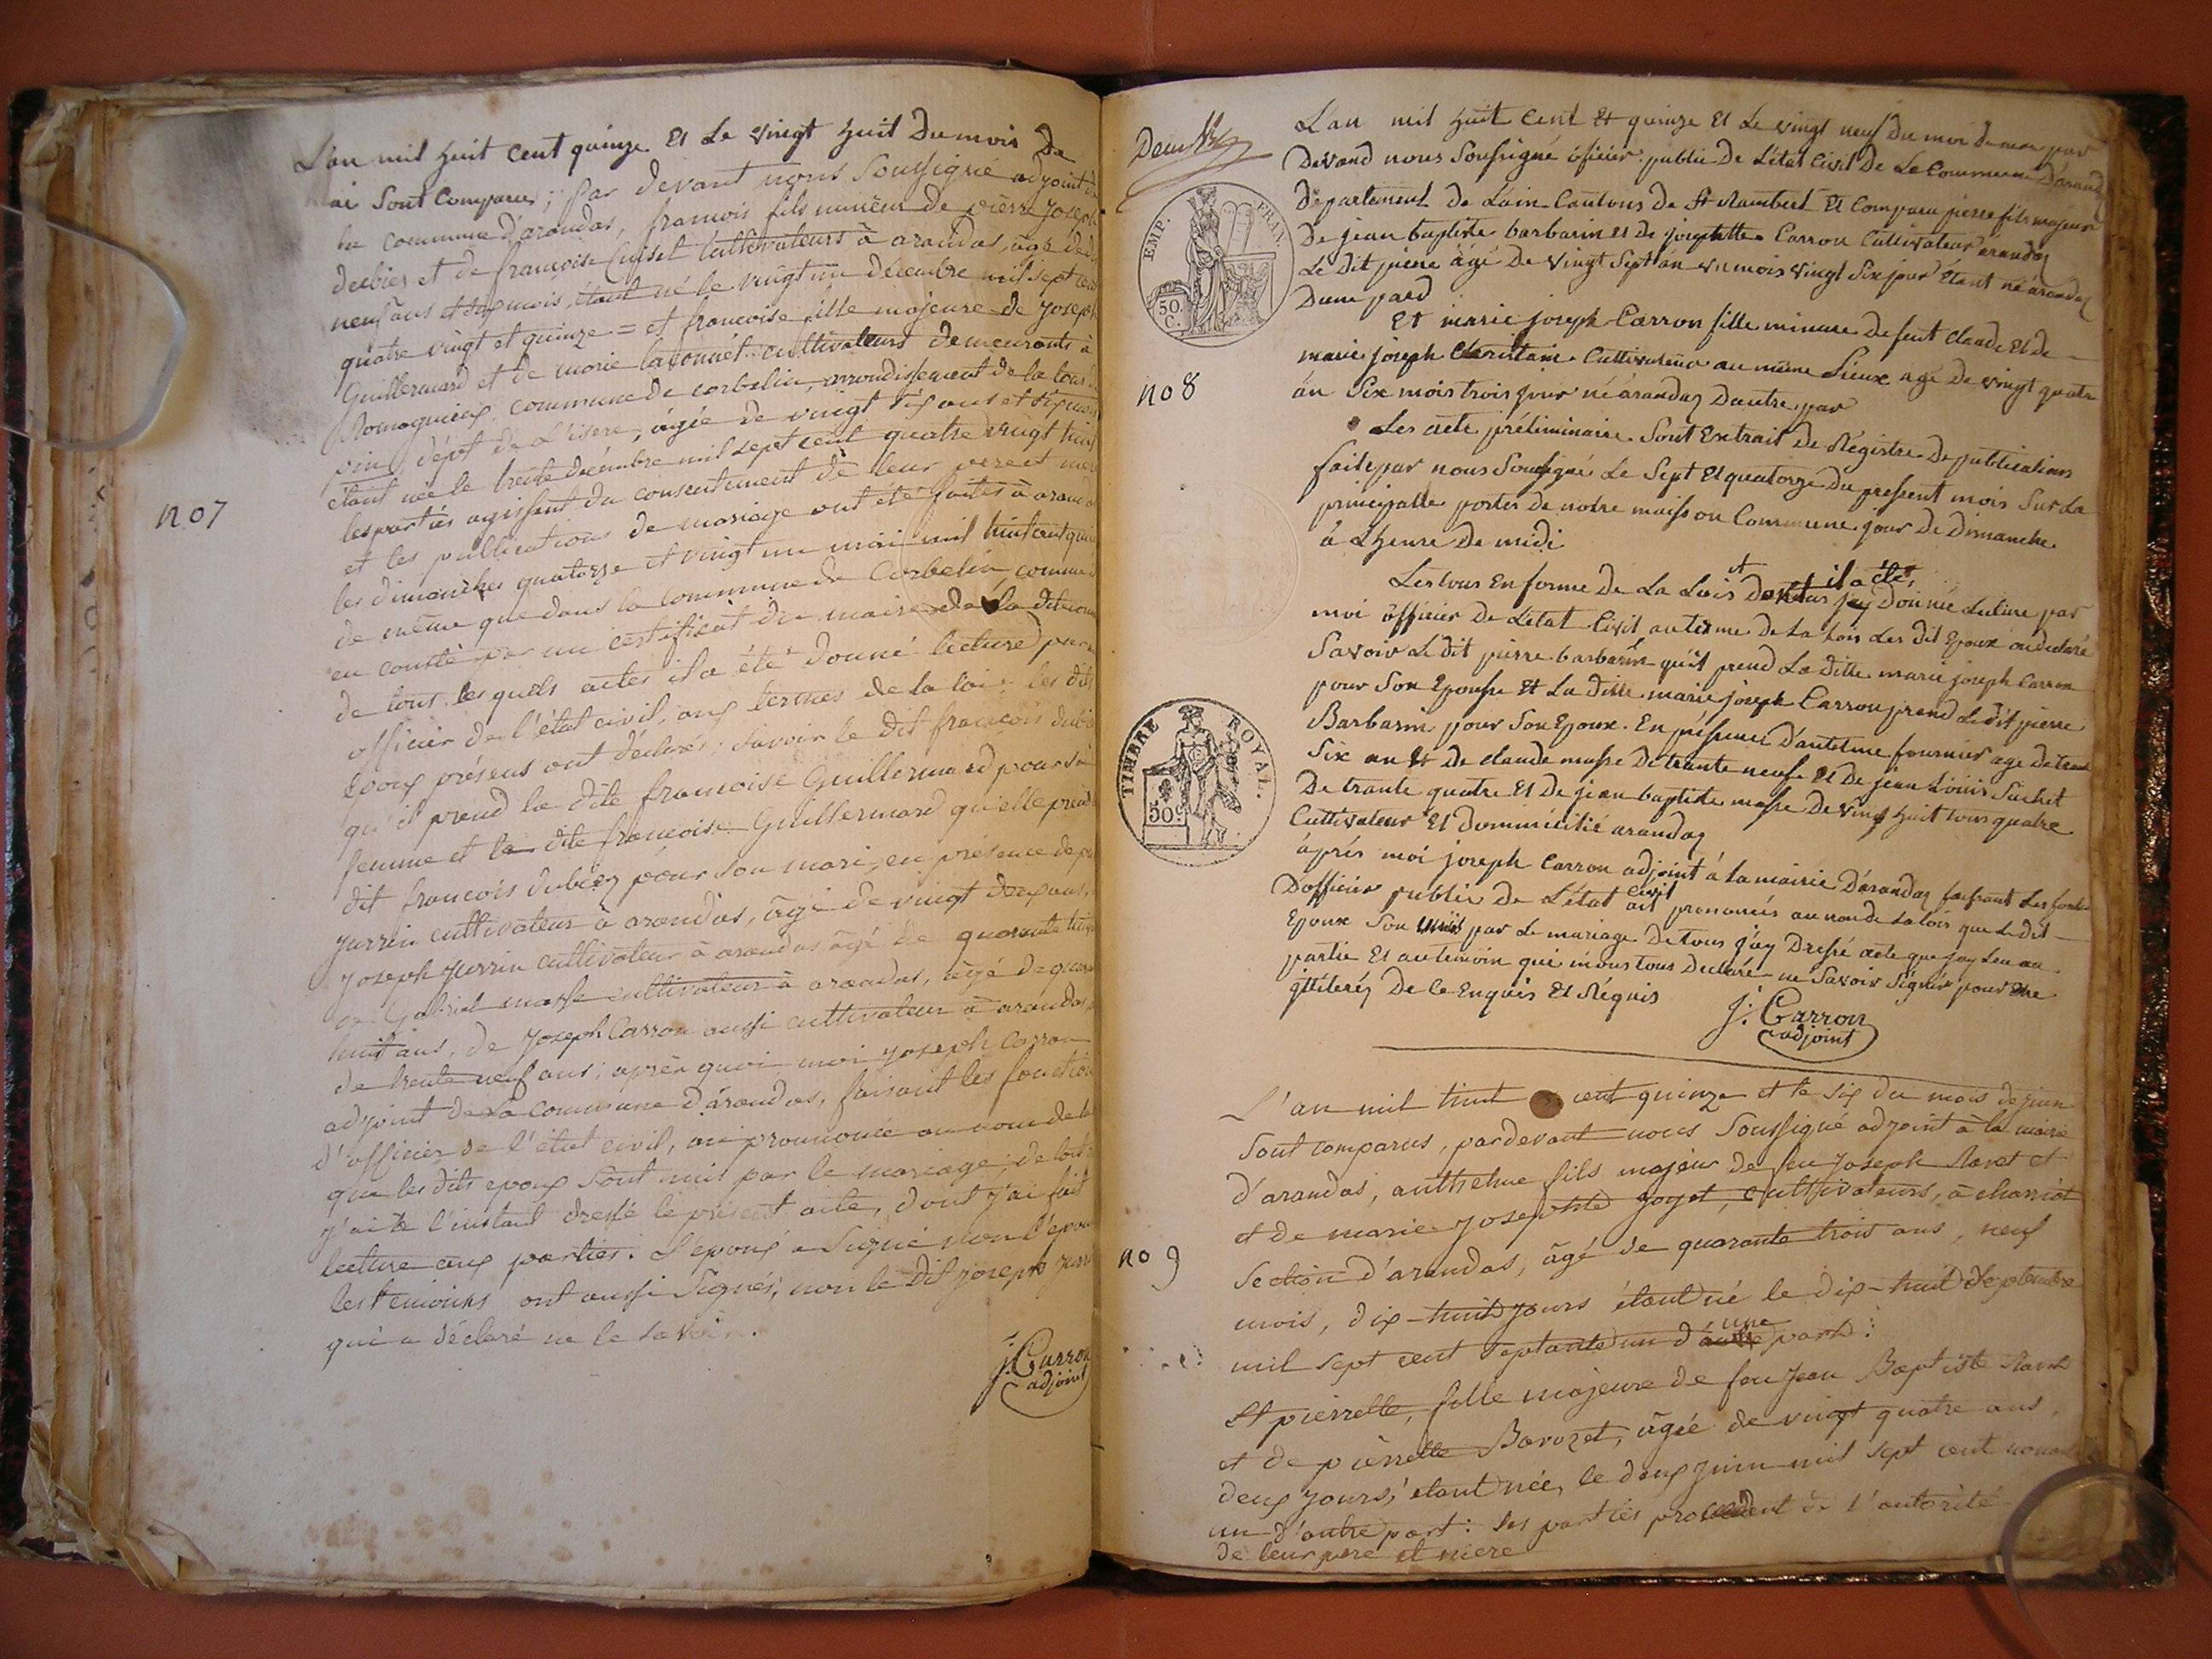 L'an mil huit cent quinze Et Le vingt huit Du mois De
mai Sont Comparus, par devant nous Soussigné adjoint de
la commune d'arandas, francois fils mineur de pierre Joseph
dubiez et de francoise Cuiset Cultivateurs à arandas, agé de dix
neuf ans et six mois, étant né le vingt un décembre mil sept cent
quatre vingt et quinze = et francoise fille majeure de Joseph
Guillermard et de marie cultivateurs demeurants à
Romagnieux, commune de corbelin, arrondissement de la tour du
pin, dépt de L'isere, âgée de vingt six ans et six mois
étant née le trente décembre mil sept cent quatre vingt huit
les parties agissent du consentement de leur pere et mere
et les publications de mariage ont été faites à arandas
les dimanches quatorze et vingt un mai mil huit cent quinze
de même que dans la commune de Corbelin, comme il
en conste par un certificat du maire de la dite commune
de tous les quels actes il a été donné lecture par moi
officier de l'état civil, aux termes de la loi; les dits
époux présens ont déclarés; savoir le dit francois dubiez
qu'il prend la dite francoise Guillermard pour sa
femme et la dite francoise Guillermard qu'elle prend le
dit francois dubiez pour son mari, en présence de
Jurrin cultivateur à arandas, âgé de vingt deux ans,
Joseph Jurrin cultivateur à arandas âgé de quarante huit
de Gabriel masse cultivateur à arandas, âgé de quarante
huit ans, de Joseph Carron aussi cultivateur à arandas
de trente neuf ans; après quoi moi joseph Carron
adjoint de La Commune d'arandas, faisant les fonctions
d'officier de l'état civil, ai prononcé au nom de la loi
que les dits epoux sont unis par le mariage; de tout
j'ai à l'instant dressé le présent acte, dont j'ai fait
lecture aux parties. L'epoux a signé non l'epouse
les temoins ont aussi Signés, non le dit joseph Jurrin
qui a déclaré ne le savoir.
J: Carron
adjoint
no 7
Deux
EMP. FRAN.
50. C.
L'an mil huit Cent Et quinze Et Le vingt neuf Du moi de mai par
Devand nous Sousigné oficier public De L'état Civil De La Commune D'arandaz
Département De Lain Cantons De St Rambert Et Comparu pierre fils majeur
De jean baptiste barbarin Et De josephtte Carron Cultivateur arandaz
Le Dit pierre âgé De vingt Sept an un mois vingt Six jour Etant né arandaz
Dune pard
no 8
Et marie joseph Carron fille mineure De feut claude Et De
marie joseph Cultivateur au même Lieux agé De vingt quatre
an Six mois trois jour né arandaz Dautre par
Les acte préliminaire Sont Extrait de Registre De publications
faite par nous Sousigné Le Sept Et quatorze du present mois Sur La
principalle porte de notre maison Commune jour de Dimanche
à Lheure De midi
Les tous En forme De La Lois Et il a été
Donnée Lecture par
moi officier De L'etat Civil au terme De La Lois Les dit Epoux on declaré
Savoir Le dit pierre barbarin quil prend La ditte marie joseph Carron
pour Son Epouse Et La ditte marie joseph Carron prend Le dit pierre
Barbarin pour Son Epoux. En présence D'antelme fournier age De trante
Six an Et De claude masse De trante neuf Et De jean Louis Suchet
De trante quatre Et De jean baptiste masse De vingt huit tous quatre
Cultivateur Et Dommicilié arandaz
TIMBRE ROYAL.
50 c.
âprés moi joseph Carron adjoint á la mairie D'arandaz faisant Les fontion
Dofficier public De L'état civil ait prononcés au nom de La lois que Le dit
Epoux Son unis par Le mariage De tous j'ay Dressé acte que jay Leu au
partie Et au temoin qui nous tous Declaré ne Savoir Signer pour Etre
De Ce Enquis Et Réquis
J: Carron
adjoint
L'an mil huit cent quinze et le six du mois de juin
Sont comparus, pardevant nous Soussigné adjoint à la mairie
d'arandas, anthelme fils majeur de feu Joseph Ravet et
et de marie Josephte Joyet, cultivateurs, à charriot
no 9
Section d'arandas, âgé de quarante trois ans, neuf
mois, dix-huit jours étant né le dix-huit Septembre
mil sept cent septante un d'une part:
Et pierrette, fille majeure de feu Jean Baptiste Ravet
et de pierrette Borozet, âgée de vingt quatre ans,
deux jours, étant née, le deux juin mil sept cent nonante
un d'autre part: les parties procedent de l'autorité
de leur pere et mere